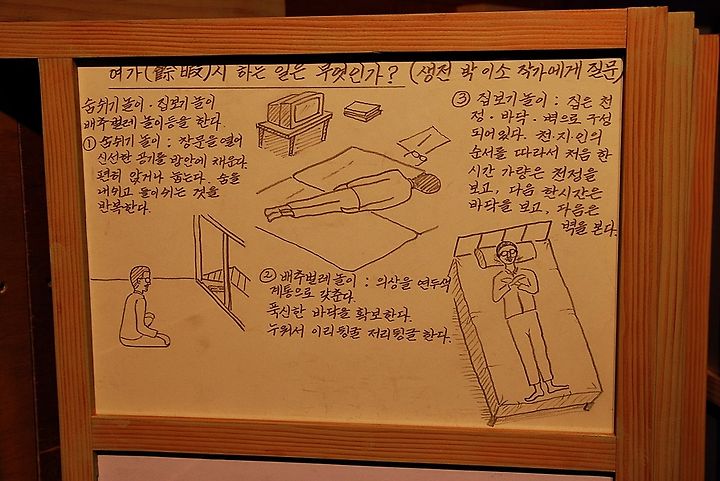 여가(餘暇)시 하는 일은 무엇인가? (생전 박이소 작가에게 질문)
숨쉬기놀이 · 집보기 놀이
배추벌레 놀이등을 한다.
① 숨쉬기 놀이 : 창문을 열어
신선한 공기를 방안에 채운다.
편히 앉거나 눕는다. 숨을
내쉬고 들이쉬는 것을
반복한다.
② 배추벌레놀이 : 의상을 연두색
계통으로 갖춘다.
푹신한 바닥을 확보한다.
누워서 이리뒹굴 저리뒹굴 한다.
③ 집보기 놀이 : 집은 천
정 · 바닥 · 벽으로 구성
되어있다. 천·지·인의
순서를 따라서 처음 한
시간 가량은 천정을
보고, 다음 한시간은
바닥을 보고, 다음은
벽을 본다.